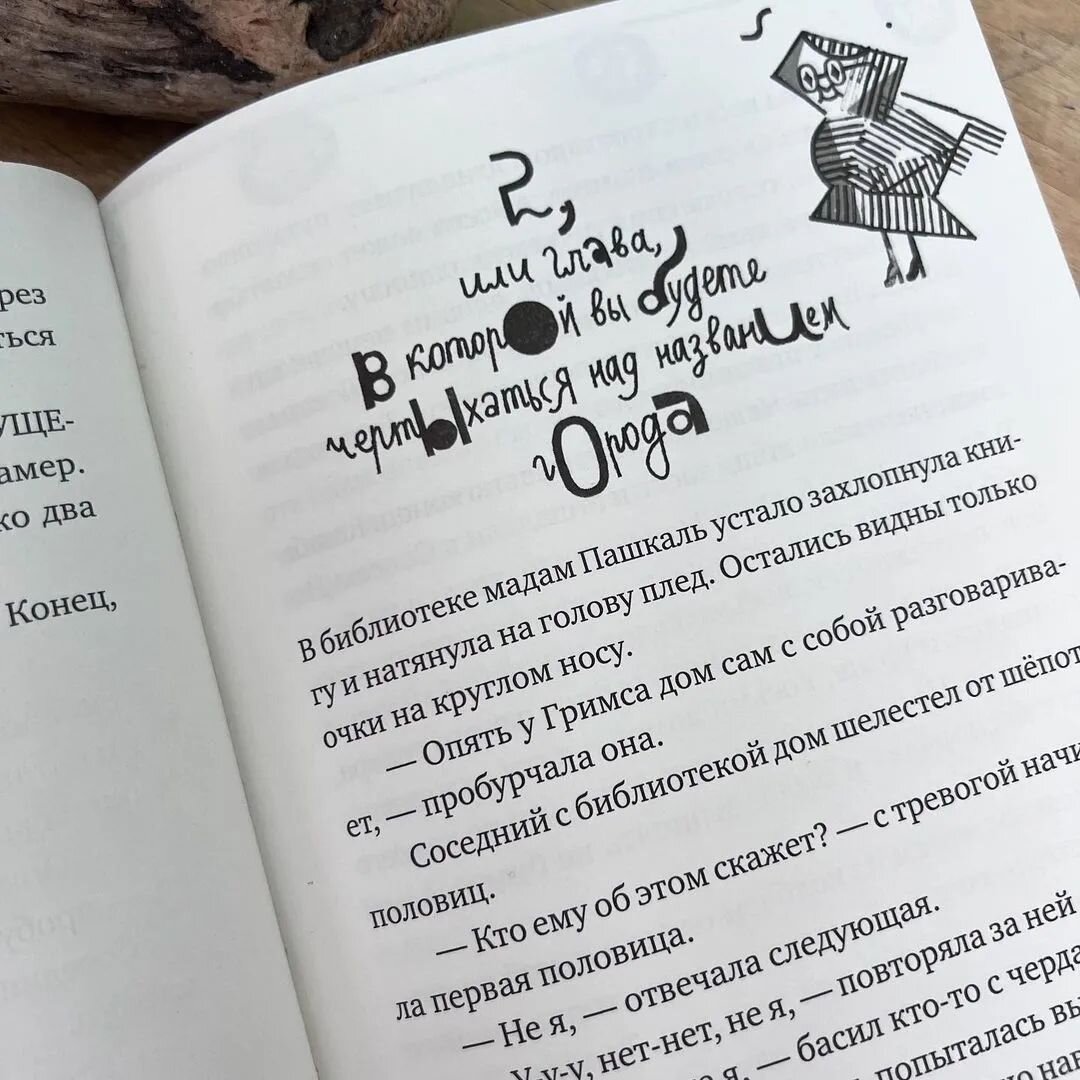 рез
ться
УЩЕ-
амер.
ко два
Конец,
2,
или глава,
в которой вы будете
чертыхаться над названием
города
В библиотеке мадам Пашкаль устало захлопнула кни-
гу и натянула на голову плед. Остались видны только
очки на круглом носу.
— Опять у Гримса дом сам с собой разговарива-
ет, — пробурчала она.
Соседний с библиотекой дом шелестел от шёпот
половиц.
— Кто ему об этом скажет? — с тревогой начи
ла первая половица.
— Не я, — отвечала следующая.
У-у-у, нет-нет, не я, — повторяла за ней
я, — басил кто-то с черда
попыталась вы